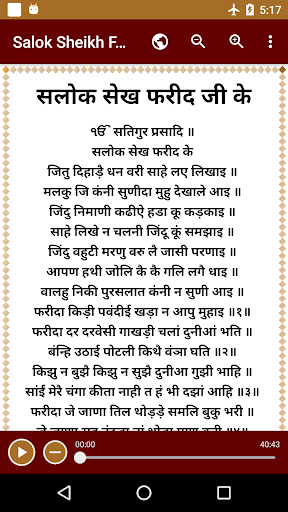 5:17
Salok Sheikh F...
सलोक सेख फरीद जी के
ੴ सतिगुर प्रसादि ॥
सलोक सेख फरीद के
जितु दिहाड़ै धन वरी साहे लए लिखाइ ॥
मलकु जि कंनी सुणीदा मुहु देखाले आइ ॥
जिंदु निमाणी कढीऐ हडा कू कड़काइ ॥
साहे लिखे न चलनी जिंदू कूं समझाइ ॥
जिंदु वहुटी मरणु वरु लै जासी परणाइ ॥
आपण हथी जोलि कै कै गलि लगै धाइ ॥
वालहु निकी पुरसलात कंनी न सुणी आइ ॥
फरीदा किड़ी पवंदीई खड़ा न आपु मुहाइ ॥१॥
फरीदा दर दरवेसी गाखड़ी चलां दुनीआं भति ॥
बंन्हि उठाई पोटली किथै वंञा घति ॥२॥
किझु न बुझै किझु न सुझै दुनीआ गुझी भाहि ॥
सांईं मेरै चंगा कीता नाही त हं भी दझां आहि ॥३॥
फरीदा जे जाणा तिल थोड़ड़े समलि बुकु भरी ॥
00:00
40:43